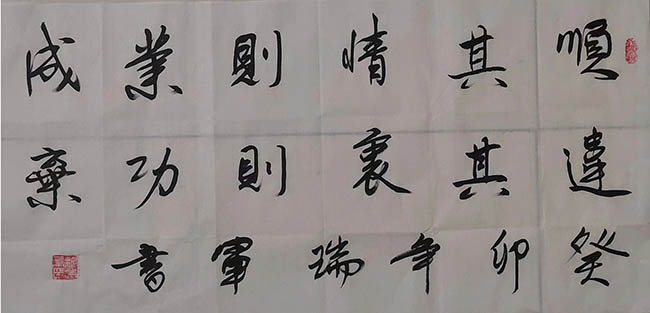 順其情則業成
違其衷則功棄
癸卯年瑞軍書